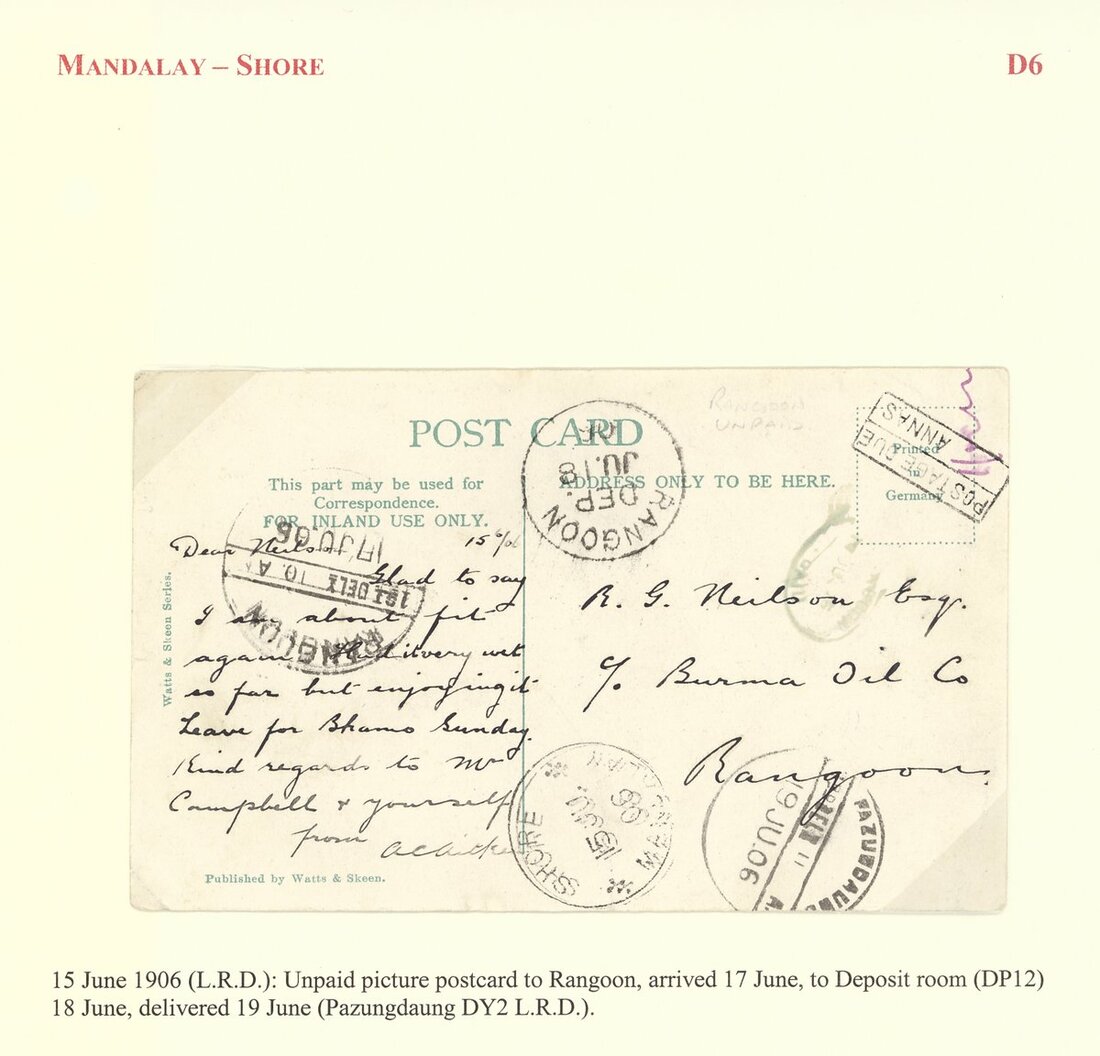 MANDALAY – SHORE
D6
RANGOON
UNPAID
POST CARD
This part may be used for
Correspondence.
FOR INLAND USE ONLY.
ADDRESS ONLY TO BE HERE.
Printed
in
Germany
POSTAGE DUE
ANNAS
RANGOON
DEP.
JU.18
RANGOON
1st DELY 10. A
17 JU.06
Watts & Skeen Series.
Dear Neilson
15/6/06
Glad to say
I am about fit
again. Had it very wet
so far but enjoying it
Leave for Bhamo Sunday.
Kind regards to Mr
Campbell & yourself
from
R. G. Neilson Esq.
c/o Burma Oil Co
Rangoon.
MANDALAY SHORE
15 JU.
06
PAZUNDAUNG
19 JU.06
Published by Watts & Skeen.
15 June 1906 (L.R.D.): Unpaid picture postcard to Rangoon, arrived 17 June, to Deposit room (DP12)
18 June, delivered 19 June (Pazungdaung DY2 L.R.D.).